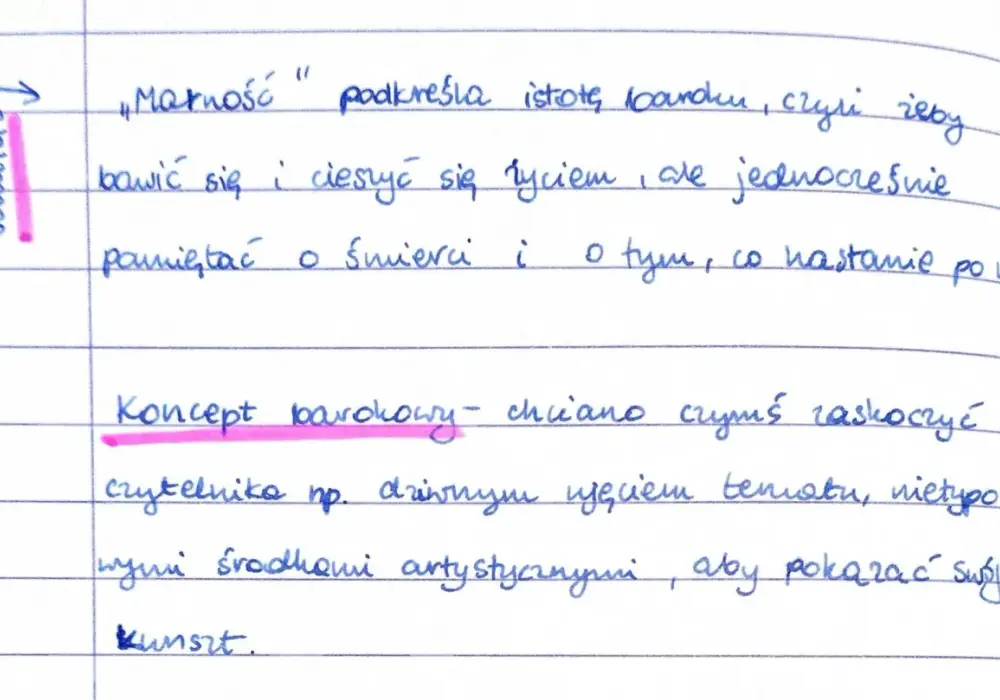 „Marność" podkreśla istotę baroku, czyli żeby
bawić się i cieszyć się życiem, ale jednocześnie
pamiętać o śmierci i o tym, co nastanie po
Koncept barokowy - chciano czymś zaskoczyć
czytelnika np. dziwnym ujęciem tematu, nietypo
wymi środkami artystycznymi, aby pokazać swój
kunszt.